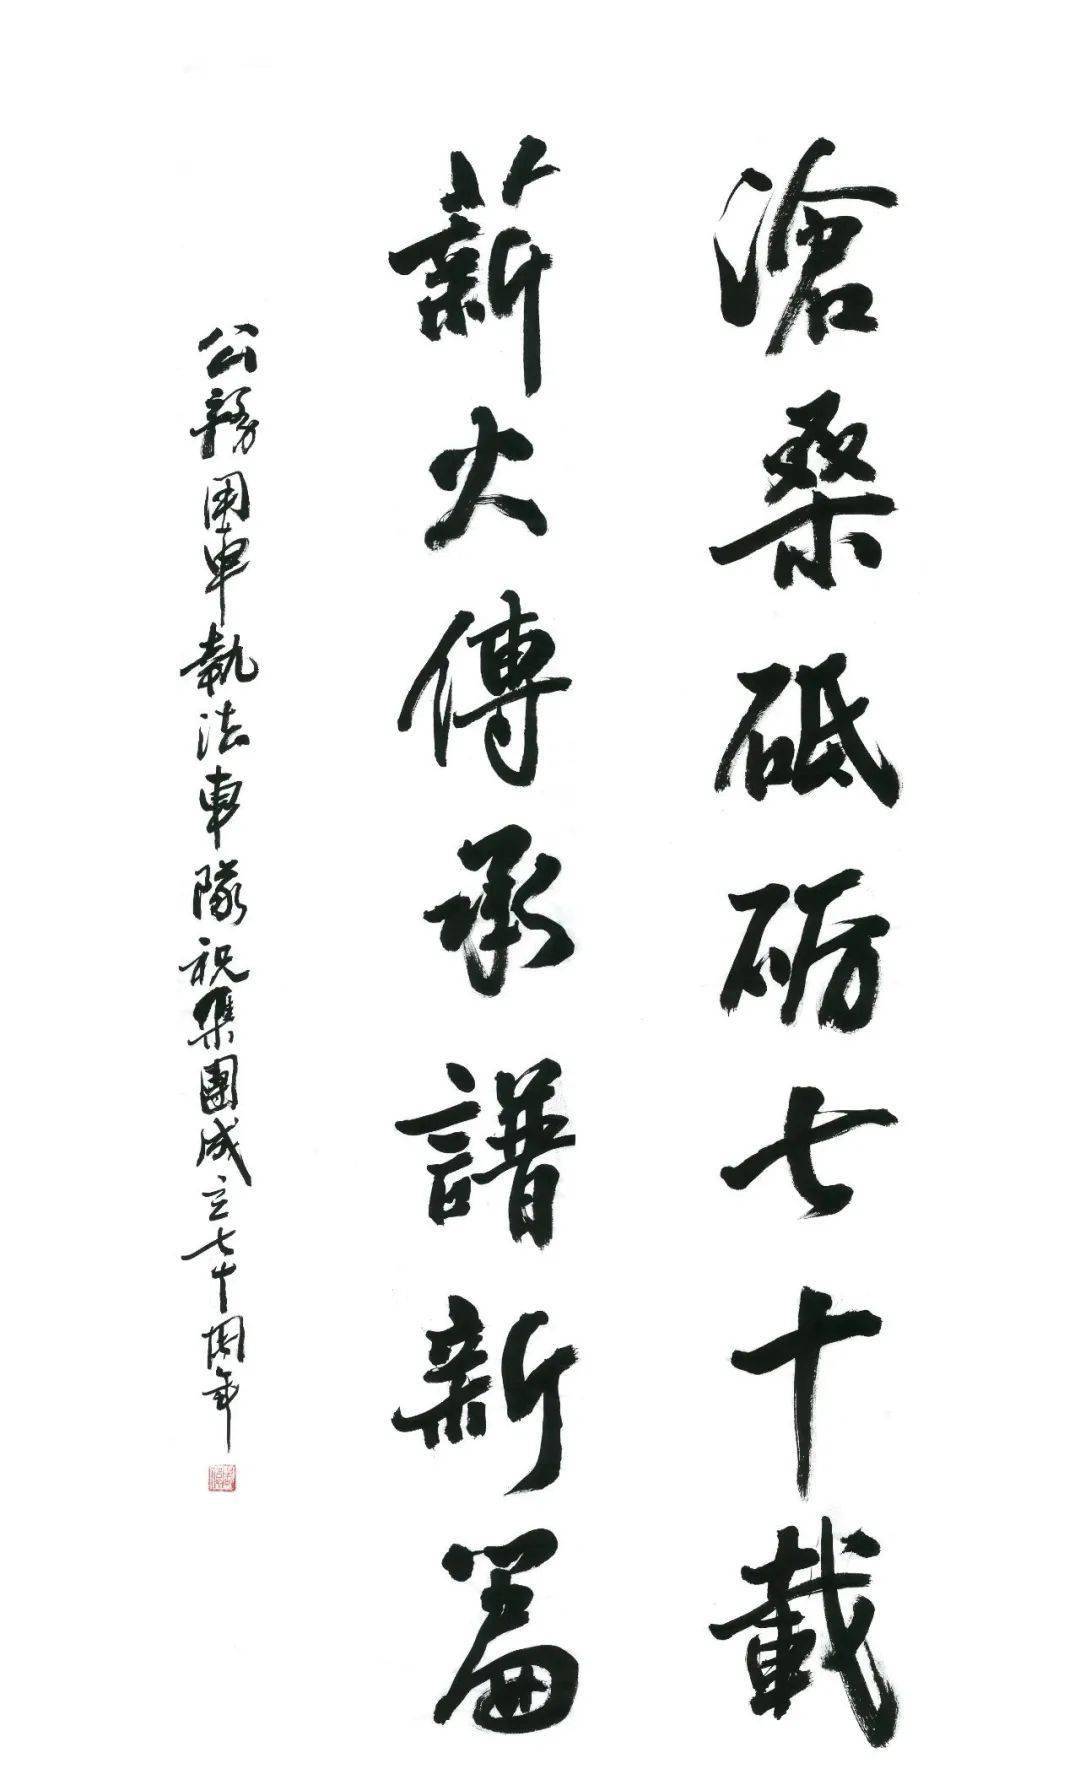 滄桑砥砺七十載
薪火傳承譜新篇
公務用車執法車隊祝集團成立七十周年